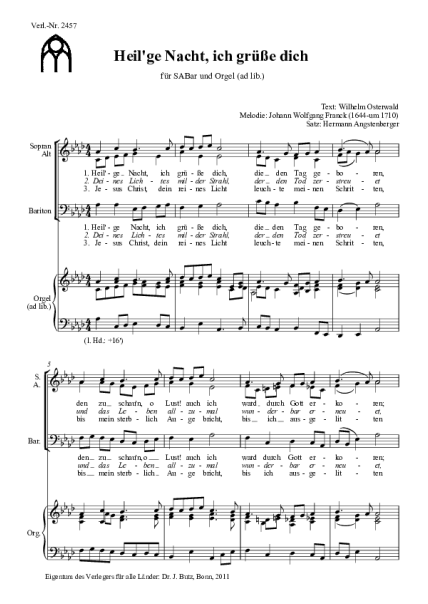 Verl.-Nr. 2457
Heil'ge Nacht, ich grüße dich
für SABar und Orgel (ad lib.)
Text: Wilhelm Osterwald
Melodie: Johann Wolfgang Franck (1644-um 1710)
Satz: Hermann Angstenberger
Sopran
Alt
1. Heil'- ge Nacht, ich grü - ße dich, die den Tag ge - bo - ren,
2. Dei - nes Lich - tes mil - der Strahl, der den Tod zer - streu - et
3. Je - sus Christ, dein rei - nes Licht leuch - te mei - nen Schrit - ten,
Bariton
1. Heil'- ge Nacht, ich grü - ße dich, die den Tag ge - bo - ren,
2. Dei - nes Lich - tes mil - der Strahl, der den Tod zer - streu - et
3. Je - sus Christ, dein rei - nes Licht leuch - te mei - nen Schrit - ten,
Orgel
(ad lib.)
(l. Hd.: +16')
5
S.
A.
den zu schau'n, o Lust! auch ich ward durch Gott er - ko - ren;
und das Le - ben all - zu - mal wun - der - bar er - neu - et,
bis mein sterb - lich An - ge bricht, bis ich aus - ge - lit - ten,
Bar.
den zu schau'n, o Lust! auch ich ward durch Gott er - ko - ren;
und das Le - ben all - zu - mal wun - der - bar er - neu - et,
bis mein sterb - lich An - ge bricht, bis ich aus - ge - lit - ten,
Org.
Eigentum des Verlegers für alle Länder: Dr. J. Butz, Bonn, 2011